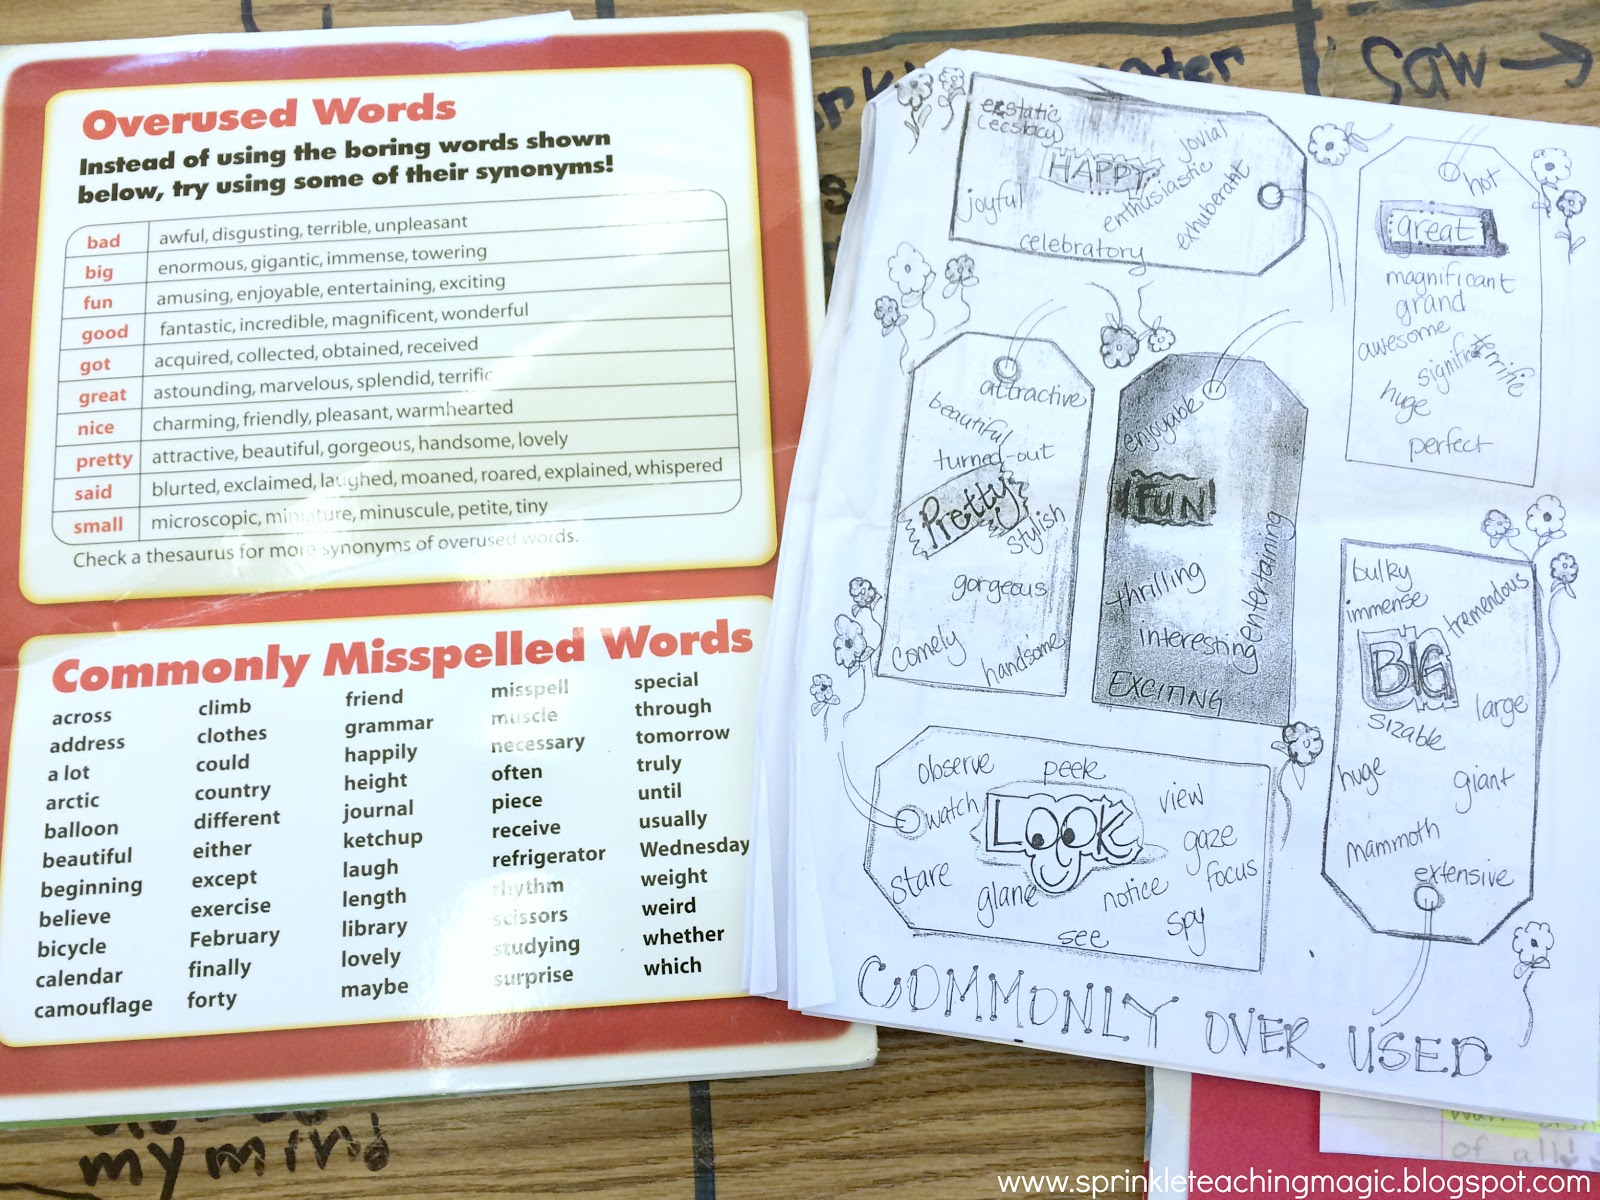 Overused Words
Instead of using the boring words shown
below, try using some of their synonyms!
bad awful, disgusting, terrible, unpleasant
big enormous, gigantic, immense, towering
fun amusing, enjoyable, entertaining, exciting
good fantastic, incredible, magnificent, wonderful
got acquired, collected, obtained, received
great astounding, marvelous, splendid, terrific
nice charming, friendly, pleasant, warmhearted
pretty attractive, beautiful, gorgeous, handsome, lovely
said blurted, exclaimed, laughed, moaned, roared, explained, whispered
small microscopic, miniature, minuscule, petite, tiny
Check a thesaurus for more synonyms of overused words.
Commonly Misspelled Words
across
address
a lot
arctic
balloon
beautiful
beginning
believe
bicycle
calendar
camouflage
climb
clothes
could
country
different
either
except
exercise
February
finally
forty
friend
grammar
happily
height
journal
ketchup
laugh
length
library
lovely
maybe
misspell
muscle
necessary
often
piece
receive
refrigerator
rhythm
scissors
studying
surprise
special
through
tomorrow
truly
until
usually
Wednesday
weight
weird
whether
which
saw →
ecstatic
(ecstacy)
HAPPY
jovial
joyful
enthusiastic
exhuberant
celebratory
hot
great
magnificant
grand
awesome
significant
terrific
huge
perfect
attractive
beautiful
turned-out
Pretty
stylish
gorgeous
comely
handsome
enjoyable
FUN!
thrilling
interesting
entertaining
EXCITING
bulky
immense
tremendous
BIG
large
sizable
huge
giant
mammoth
extensive
observe
peek
watch
LOOK
view
gaze
stare
glance
notice
focus
see
spy
COMMONLY OVER USED
my mind
of all!
www.sprinkleteachingmagic.blogspot.com